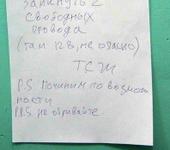 Замкнуть 2
свободных
провода
(там 12 в, не опасно)
ТСЖ
P.S Починим по возможности
P.P.S не обрывайте